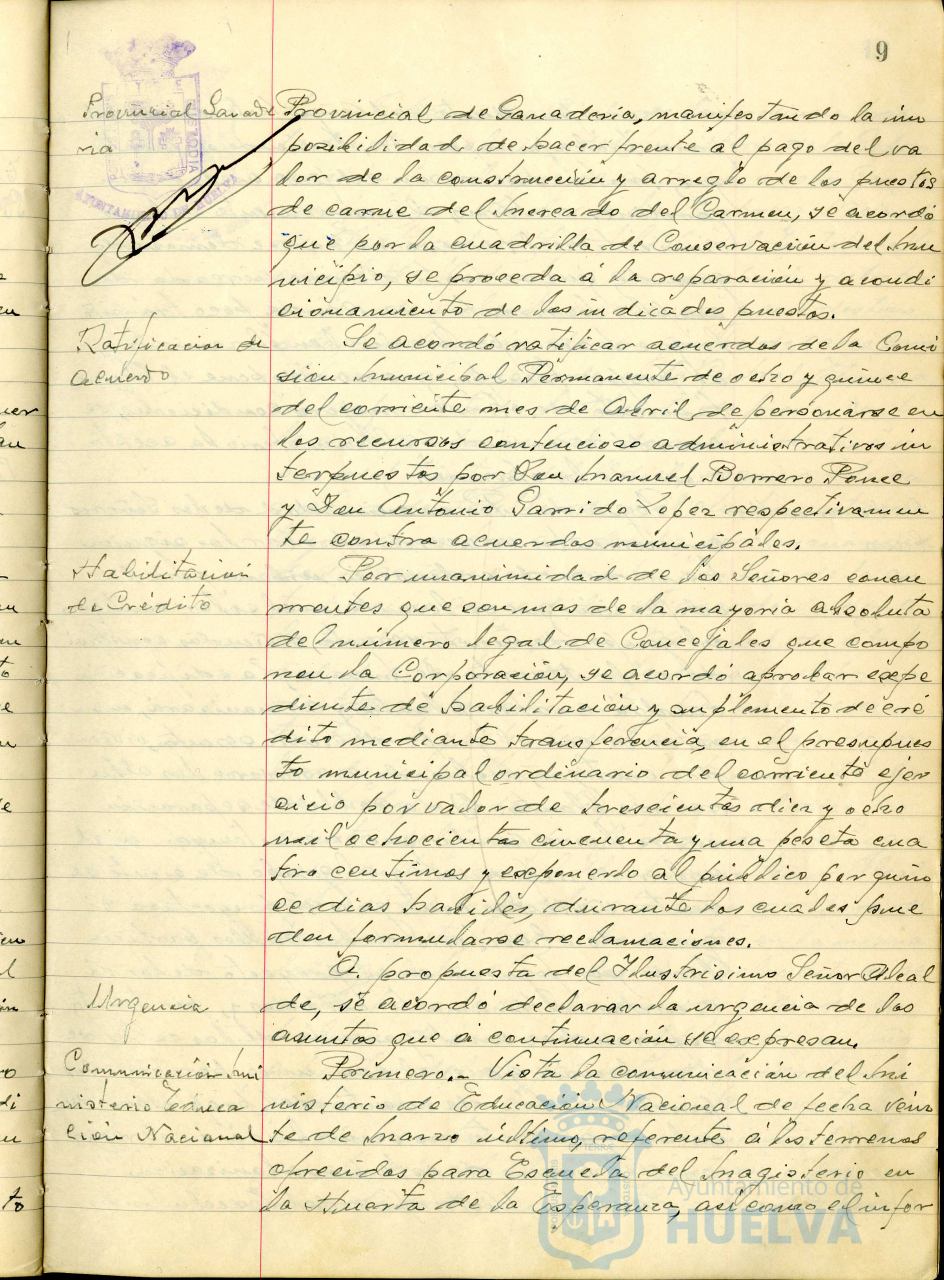 9
Provincial Ganade
ria
Provincial de Ganadería, manifestando la im
posibilidad de hacer frente al pago del va
lor de la construcción y arreglo de los puestos
de carne del Mercado del Carmen, se acordó
que por la cuadrilla de Conservación del Mu
nicipio, se proceda á la reparación y acondi
cionamiento de los indicados puestos.
Ratificacion de
Acuerdo
Se acordó ratificar acuerdos de la Comi
sión Municipal Permanente de ocho y quince
del corriente mes de Abril de personarse en
los recursos contencioso administrativos in
terpuestos por Don Manuel Borrero Ponce
y Don Antonio Garrido Lopez respectivamen
te contra acuerdos municipales.
Habilitación
de Crédito
Por unanimidad de los Señores concu
rrentes que son mas de la mayoria absoluta
del número legal de Concejales que compo
nen la Corporación, se acordó aprobar expe
diente de habilitación y suplemento de cré
dito mediante transferencia, en el presupues
to municipal ordinario del corriente ejer
cicio por valor de trescientas diez y ocho
mil ochocientas cincuenta y una peseta cua
tro centimos y exponerlo al público por quin
ce dias habiles, durante los cuales pue
den formularse reclamaciones.
Urgencia
A propuesta del Ilustrisimo Señor Alcal
de, se acordó declarar la urgencia de los
asuntos que á continuación se expresan.
Comunicación Mi
nisterio Educa
ción Nacional
Primero.- Vista la comunicación del Mi
nisterio de Educación Nacional de fecha vein
te de Marzo último, referente á los terrenos
ofrecidos para Escuela del Magisterio en
la Huerta de la Esperanza, así como el infor
Ayuntamiento de
HUELVA